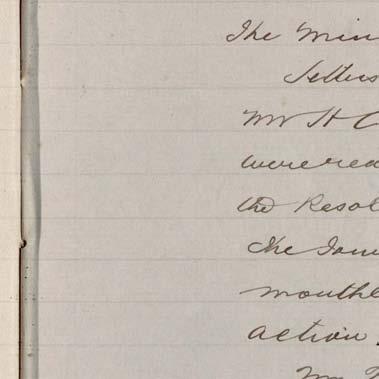 The Min
Letters
Mr H C
were rea
the Resol
the Tow
monthl
action
Mr